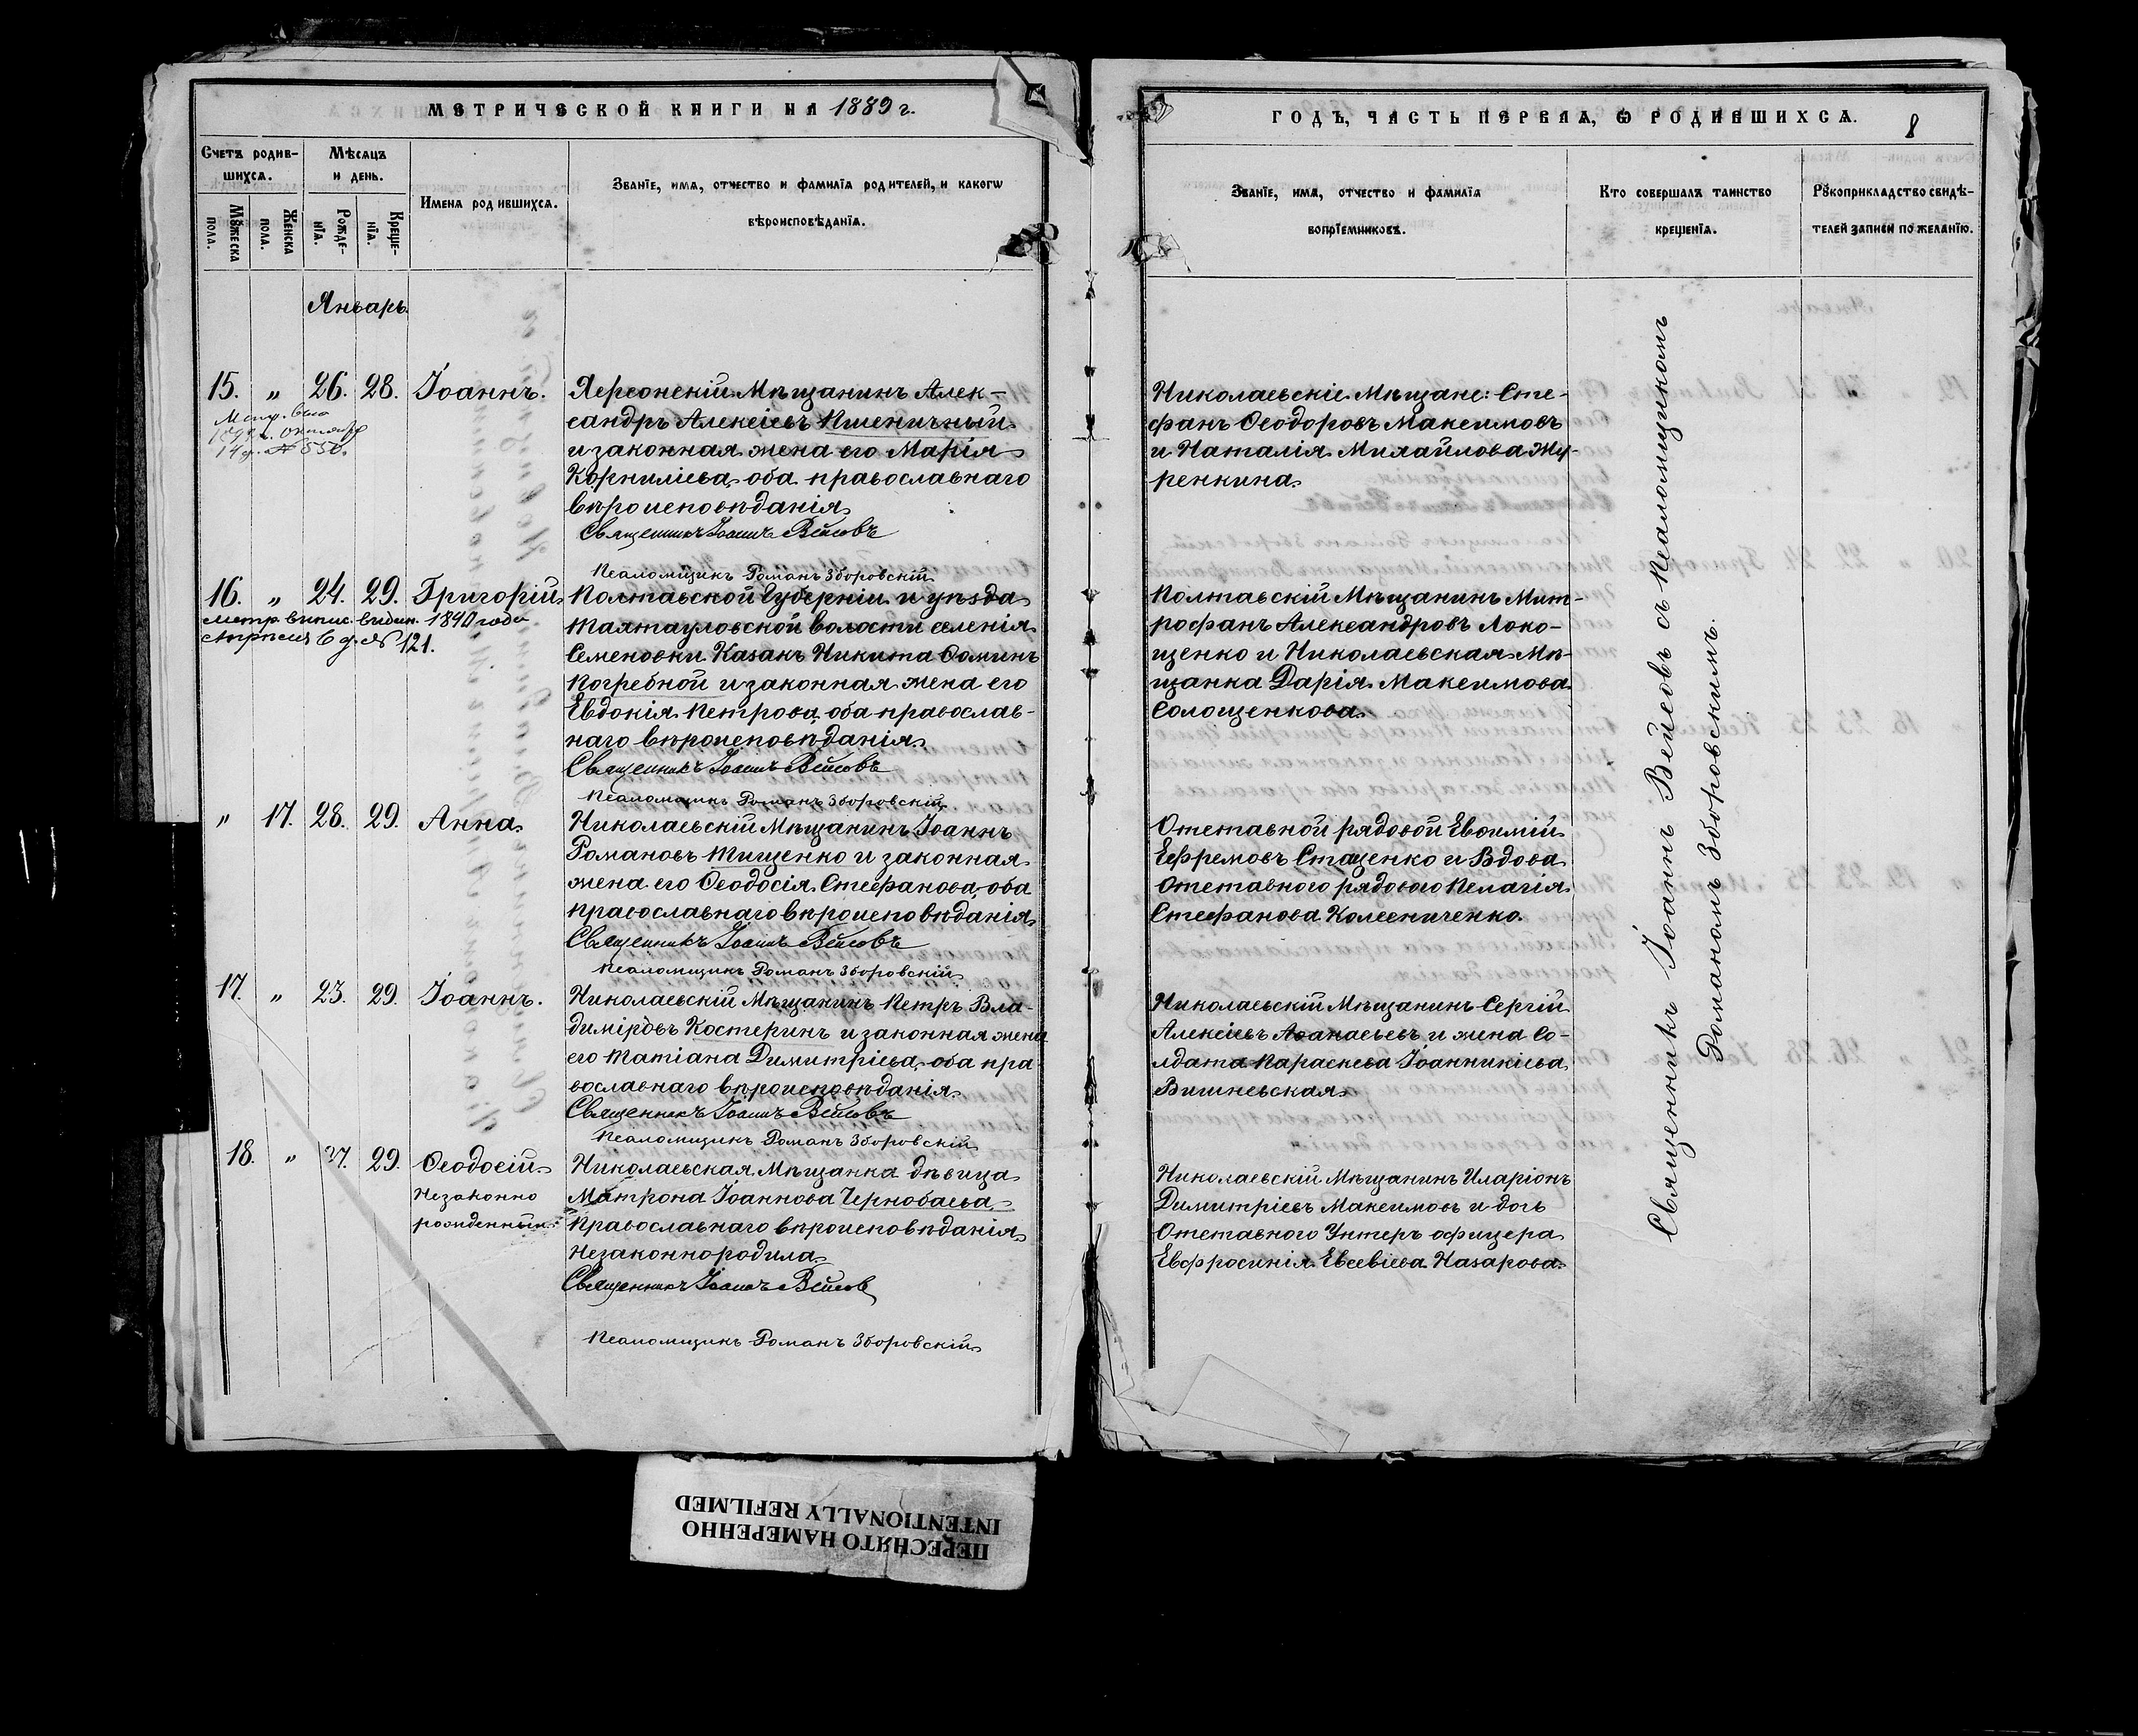 МЕТРИЧЕСКОЙ КНИГИ НА 1889 г.
Счетъ родив-
шихся.
Мѣсяцъ
и день.
Мужеска
пола.
Женска
пола.
Рожде-
нія.
Креще-
нія.
Имена родившихся.
Званіе, имя, отчество и фамилія родителей, и какогѡ
вѣроисповѣданія.
Январь.
15. „ 26. 28. Іоаннъ.
Херсонскій Мѣщанинъ Алек-
сандръ Алексіевъ Пшеничный
и законная жена его Марія
Корниліева, оба православнаго
вѣроисповѣданія
Священникъ Іоаннъ Вейсовъ
Псаломщикъ Романъ Зборовскій
16. „ 24. 29. Григорій
метр. выпис. выдан. 1890 года
№ 121.
Полтавской Губерніи и уѣзда
Тахтауловской волости селенія
Семеновки Казакъ Никита Ѳоминъ
Погребной и законная жена его
Евдокія Петрова, оба православ-
наго вѣроисповѣданія
Священникъ Іоаннъ Вейсовъ
Псаломщикъ Романъ Зборовскій
„ 17. 28. 29. Анна
Николаевскій Мѣщанинъ Іоаннъ
Романовъ Тищенко и законная
жена его Ѳеодосія Стефанова, оба
православнаго вѣроисповѣданія
Священникъ Іоаннъ Вейсовъ
Псаломщикъ Романъ Зборовскій
17. „ 23. 29. Іоаннъ.
Николаевскій Мѣщанинъ Петръ Вла-
диміровъ Костеринъ и законная жена
его Татіана Димитріева, оба пра-
вославнаго вѣроисповѣданія
Священникъ Іоаннъ Вейсовъ
Псаломщикъ Романъ Зборовскій
18. „ 27. 29. Ѳеодосій
Незаконно
рожденный.
Николаевская Мѣщанка дѣвица
Матрона Іоаннова Чернобаева
православнаго вѣроисповѣданія
незаконнородила
Священникъ Іоаннъ Вейсов
Псаломщикъ Романъ Зборовскій
ГОДЪ, ЧАСТЬ ПЕРВАЯ, Ѡ РОДИВШИХСЯ.
8
Званіе, имя, отчество и фамилія
воспріемниковъ.
Кто совершалъ таинство
крещенія.
Рукоприкладство свидѣ-
телей записи по желанію.
Николаевскіе Мѣщане: Сте-
фанъ Ѳеодоровъ Максимовъ
и Наталія Михайлова Жу-
ренкина
Полтавскій Мѣщанинъ Мит-
рофанъ Александровъ Локо-
щенко и Николаевская Мѣ-
щанка Дарія Максимова
Солощенкова
Отставной рядовой Евѳимій
Ефремовъ Стаценко и Вдова
Отставного рядового Пелагія
Стефанова Колесниченко
Николаевскій Мѣщанинъ Сергій
Алексіевъ Аѳанасьевъ и жена Со-
лдата Параскева Іоанникіева
Вишневская
Николаевскій Мѣщанинъ Иларіонъ
Димитріевъ Максимовъ и дочь
Отставного Унтеръ офицера
Евфросинія Евсевіева Назарова
Священникъ Іоаннъ Вейсовъ съ псаломщикомъ
Романомъ Зборовскимъ.
ПЕРЕСНЯТО НАМЕРЕННО
INTENTIONALLY REFILMED